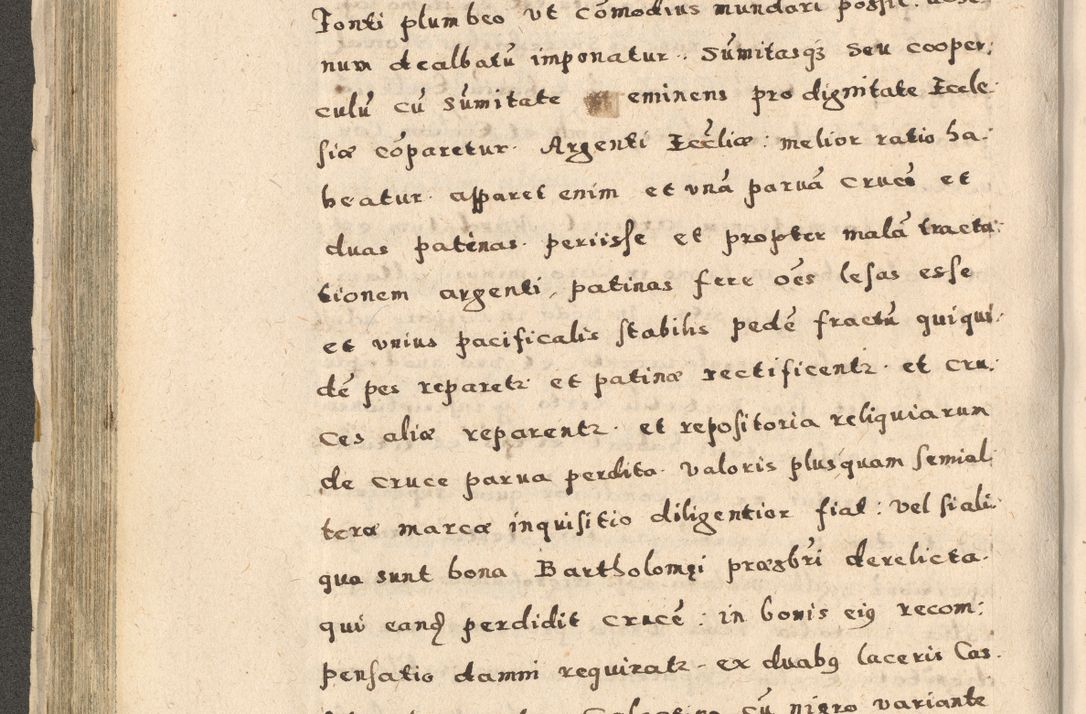 Fonti plumbeo ut cōmodius mundari possit
num dealbatū imponatur. Sūmitasq₃ seu cooper:
culū cū sūmitate eminens pro dignitate Eccle:
siæ cōparetur. Argenti Eccłiæ: melior ratio ha:
beatur. apparet enim et unā paruā crucē et
duas patenas periisse et propter malā tracta:
tionem argenti, patinas fere oēs lesas esse
et unius pacificalis stabilis pedē fractū quiqui:
dē pes reparetr et patinæ rectificentr. et cru:
ces aliæ reparentr. et repositoria reliquiarum
de cruce parua perdita. valoris plusquam semial:
teræ marcæ inquisitio diligentior fiat: vel si ali:
qua sunt bona Bartholomęi præsbr̄i derelicta.
qui eandē perdidit crucē: in bonis eiꝰ recom:
pensatio damni requiratr. ex duabꝰ laceris Cas:
cū nigro variante